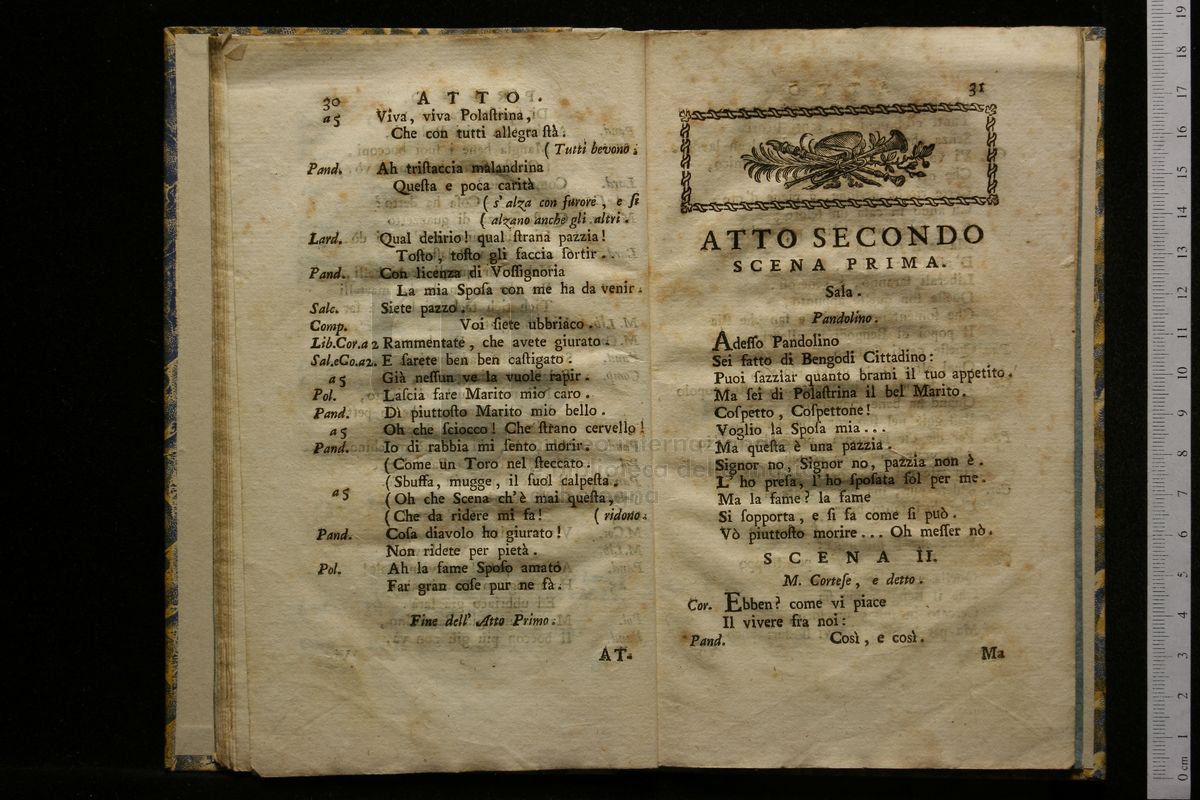 30 ATTO.
a 5 Viva, viva Polaſtrina,
Che con tutti allegra ſtà.
( Tutti bevono.
Pand. Ah triſtaccia malandrina
Queſta e poca carità
( s'alza con furore, e ſi
( alzano anche gli altri.
Lard. Qual delirio! qual ſtrana pazzia!
Toſto, toſto gli faccia ſortir..
Pand. Con licenza di Voſſignoria
La mia Spoſa con me ha da venir.
Salc. Siete pazzo.
Comp. Voi ſiete ubbriaco.
Lib.Cor.a 2 Rammentate, che avete giurato.
Sal.eCo.a2. E ſarete ben ben caſtigato.
a 5 Già neſſun ve la vuole rapir.
Pol. Laſcia fare Marito mio caro.
Pand. Dì piuttoſto Marito mio bello.
a 5 Oh che ſciocco! Che ſtrano cervello!
Pand. Io di rabbia mi ſento morir.
(Come un Toro nel ſteccato.
(Sbuffa, mugge, il ſuol calpeſta.
a 5 (Oh che Scena ch'è mai queſta,
(Che da ridere mi fa! ( ridono.
Pand. Coſa diavolo ho giurato!
Non ridete per pietà.
Pol. Ah la fame Spoſo amato
Far gran coſe pur ne fà.
Fine dell' Atto Primo.
AT-
31
ATTO SECONDO
SCENA PRIMA.
Sala.
Pandolino.
Adeſſo Pandolino
Sei fatto di Bengodi Cittadino:
Puoi ſazziar quanto brami il tuo appetito.
Ma ſei di Polaſtrina il bel Marito.
Coſpetto, Coſpettone!
Voglio la Spoſa mia...
Ma queſta è una pazzia.
Signor no, Signor no, pazzia non è.
L' ho preſa, l'ho ſpoſata ſol per me.
Ma la fame? la fame
Si ſopporta, e ſi fa come ſi può.
Vò piuttoſto morire... Oh meſſer nò.
SCENA II.
M. Corteſe, e detto.
Cor. Ebben? come vi piace
Il vivere fra noi:
Pand. Così, e così.
Ma